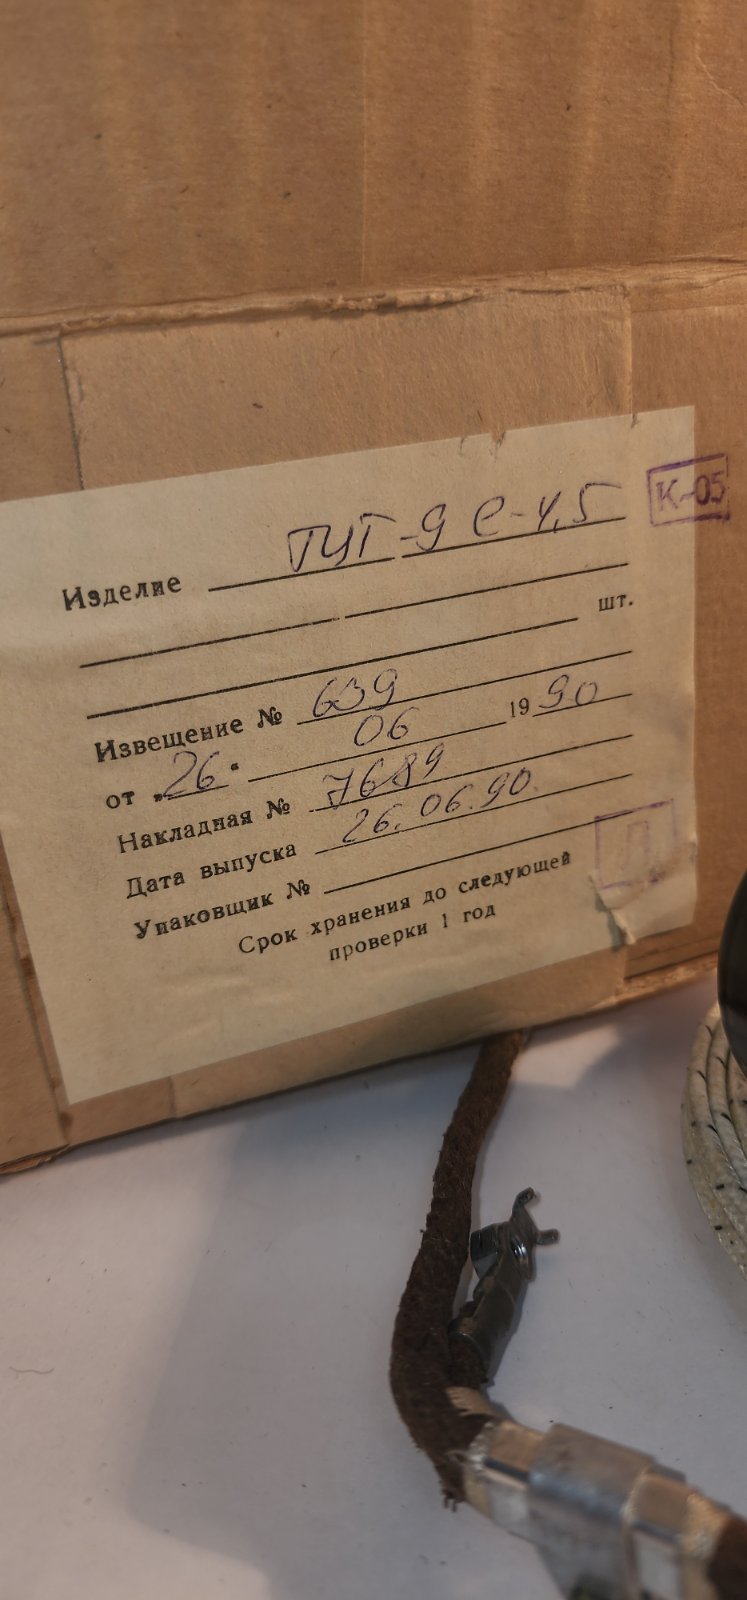 К-05
Изделие ТЦТ-9 С-4,5
шт.
Извещение № 639
от „26“ 06 1990
Накладная № 7689
Дата выпуска 26.06.90.
Упаковщик №
Срок хранения до следующей
проверки 1 год